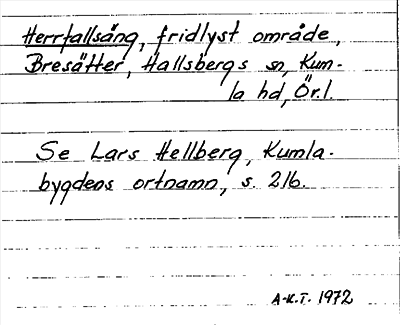 Herrfallsäng, fridlyst område,
Bresätter, Hallsbergs sn, Kum-
la hd, Ör.l.
Se Lars Hellberg, Kumla-
bygdens ortnamn, s. 216.
A-K.T. 1972